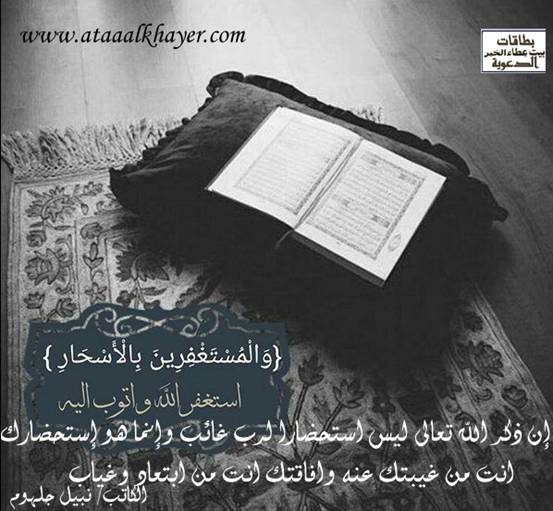 www.ataaalkhayer.com
بطاقات
بيت عطاء الخير
الدعوية
{وَالْمُسْتَغْفِرِينَ بِالْأَسْحَارِ}
استغفر الله واتوب اليه
إن ذكر الله تعالى ليس استحضارا لرب غائب وإنما هو إستحضارك
انت من غيبتك عنه وافاقتك انت من ابتعاد وغياب
الكاتب/ نبيل جلهوم